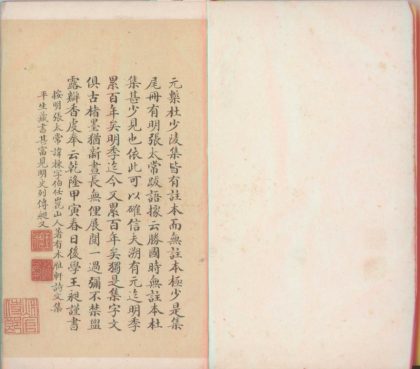 元槧杜少陵集皆有註本而無註本極少是集
尾冊有明張太常跋語據云勝國時無註本杜
集甚少見也依此可以確信夫朔有元迄明季
累百年矣明季迄今又累百年矣獨是集字文
俱古楮墨猶新晝長無俚展閱一過彌不禁盥
露瓣香虔奉云乾隆甲寅春日後學王昶謹書
按明張太常諱棟字伯任崑山人著有木雁軒詩文集
平生藏書甚富見明史列傳昶又